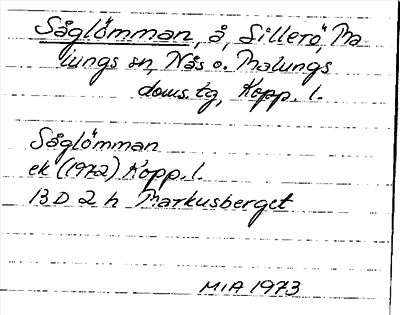 Såglömman, å, Lillerö, Ma
lungs sn, Nås o. Malungs
doms. tg, Kopp. l.
Såglömman
ek (1972) Kopp. l.
13 D 2 h Markusberget
MIA 1973